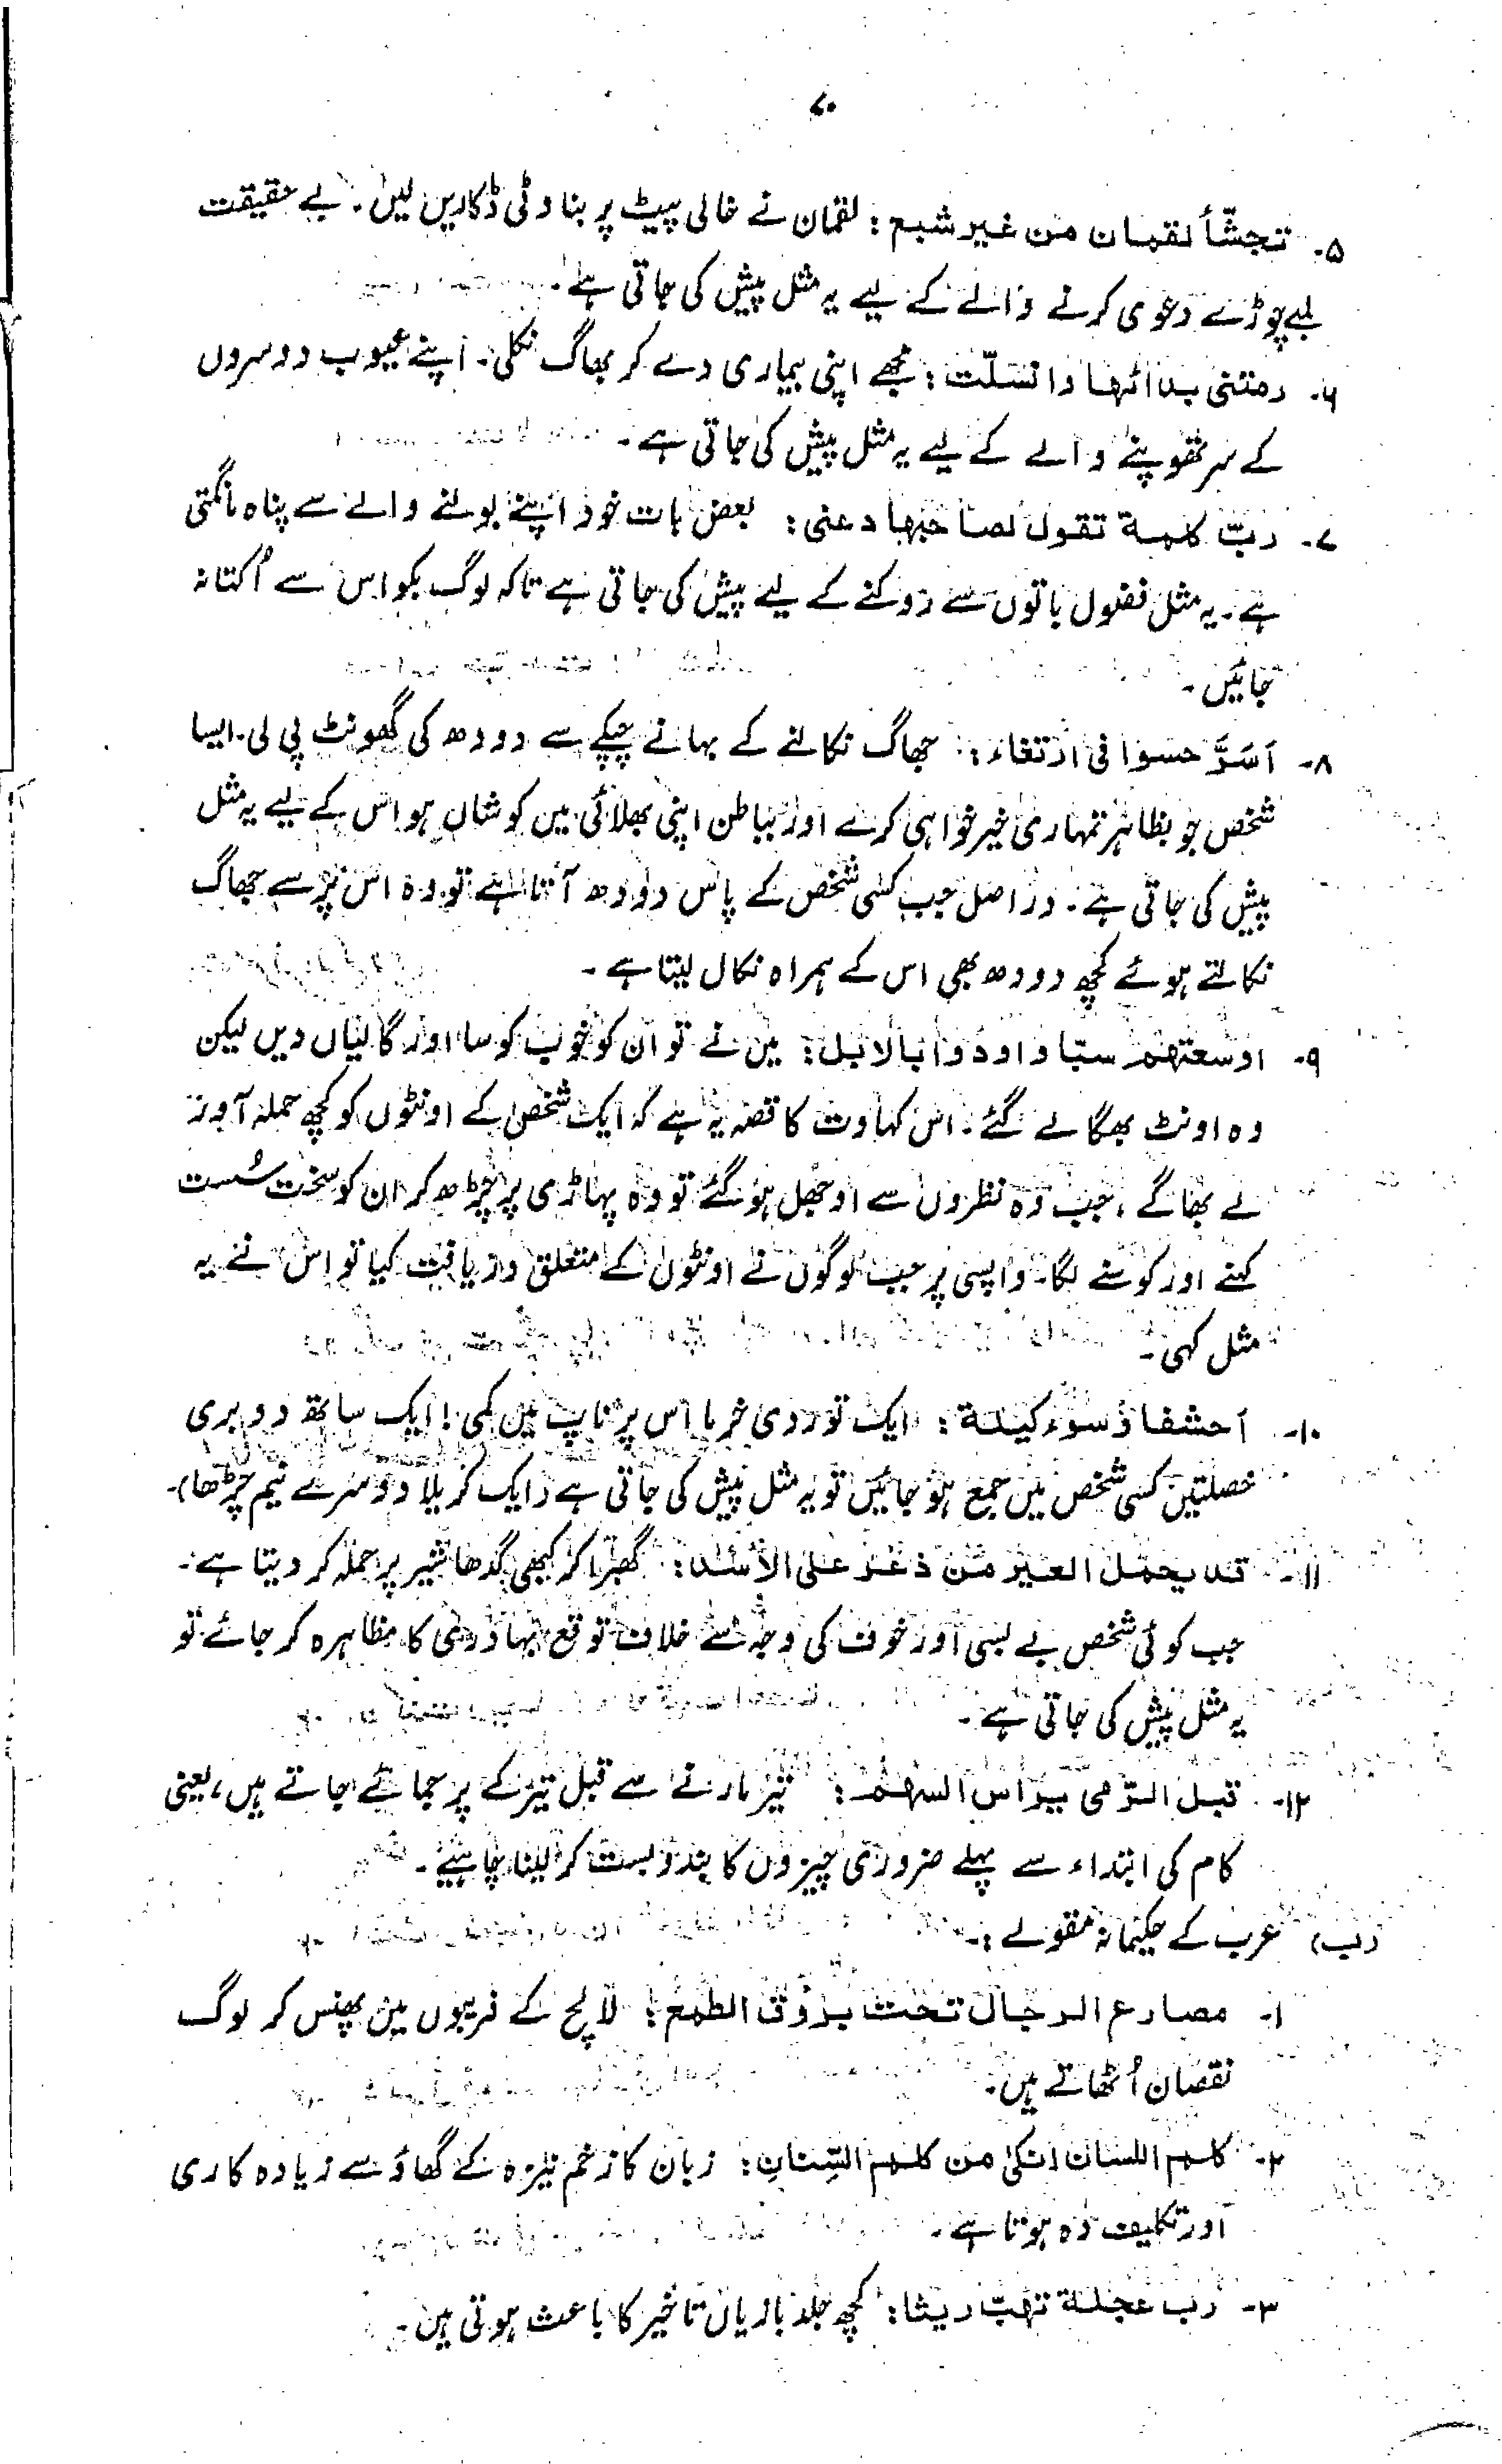 ۷۰
۵۔ تجشّأ لقمان من غیر شبع : لقمان نے خالی پیٹ پر بناوٹی ڈکاریں لیں۔ بے حقیقت
لمبے چوڑے دعوی کرنے والے کے لیے یہ مثل پیش کی جاتی ہے۔
۶۔ رمتنی بدائہا وانسلّت : مجھے اپنی بیماری دے کر بھاگ نکلی۔ اپنے عیوب دوسروں
کے سر تھوپنے والے کے لیے یہ مثل پیش کی جاتی ہے۔
۷۔ ربّ کلمة تقول لصاحبہا دعنی : بعض بات خود اپنے بولنے والے سے پناہ مانگتی
ہے۔ یہ مثل فضول باتوں سے روکنے کے لیے پیش کی جاتی ہے تاکہ لوگ بکواس سے اُکتا نہ
جائیں۔
۸۔ اَسَرَّ حسوا فی ارتغاء : جھاگ نکالنے کے بہانے چپکے سے دودھ کی گھونٹ پی لی۔ ایسا
شخص جو بظاہر تمہاری خیر خواہی کرے اور بباطن اپنی بھلائی میں کوشاں ہو اس کے لیے یہ مثل
پیش کی جاتی ہے۔ دراصل جب کسی شخص کے پاس دودھ آتا ہے تو وہ اس پر سے جھاگ
نکالتے ہوئے کچھ دودھ بھی اس کے ہمراہ نکال لیتا ہے۔
۹۔ اوسعتھم سبّا و اودوا بالابل : میں نے تو ان کو خوب کوسا اور گالیاں دیں لیکن
وہ اونٹ بھگا لے گئے۔ اس کہاوت کا قصہ یہ ہے کہ ایک شخص کے اونٹوں کو کچھ حملہ آور
لے بھاگے ، جب وہ نظروں سے اوجھل ہو گئے تو وہ پہاڑی پر چڑھ کر ان کو سخت سُست
کہنے اور کوسنے لگا۔ واپسی پر جب لوگوں نے اونٹوں کے متعلق دریافت کیا تو اس نے یہ
مثل کہی۔
۱۰۔ اَحشفا وسوء کیلة : ایک تو ردی خرما اس پر ناپ میں کمی ! ایک ساتھ دو بری
خصلتیں کسی شخص میں جمع ہو جائیں تو یہ مثل پیش کی جاتی ہے (ایک کریلا دوسرے نیم چڑھا)۔
۱۱۔ قد یحمل العیر من ذعر علی الأسد : گھبرا کر کبھی گدھا شیر پر حملہ کر دیتا ہے۔
جب کوئی شخص بے بسی اور خوف کی وجہ سے خلاف توقع بہادری کا مظاہرہ کر جائے تو
یہ مثل پیش کی جاتی ہے۔
۱۲۔ قبل الرّمی یراس السہم : تیر مارنے سے قبل تیر کے پر جمائے جاتے ہیں ، یعنی
کام کی ابتداء سے پہلے ضروری چیزوں کا بندوبست کر لینا چاہیے۔
(ب) عرب کے حکیمانہ مقولے :۔
۱۔ مصارع الرجال تحت بروق الطمع : لالچ کے فریبوں میں پھنس کر لوگ
نقصان اُٹھاتے ہیں۔
۲۔ کلم اللسان انکیٰ من کلم السِّنانِ : زبان کا زخم نیزہ کے گھاؤ سے زیادہ کاری
اور تکلیف دہ ہوتا ہے۔
۳۔ رب عجلة تہبّ ریثا : کچھ جلد بازیاں تاخیر کا باعث ہوتی ہیں۔